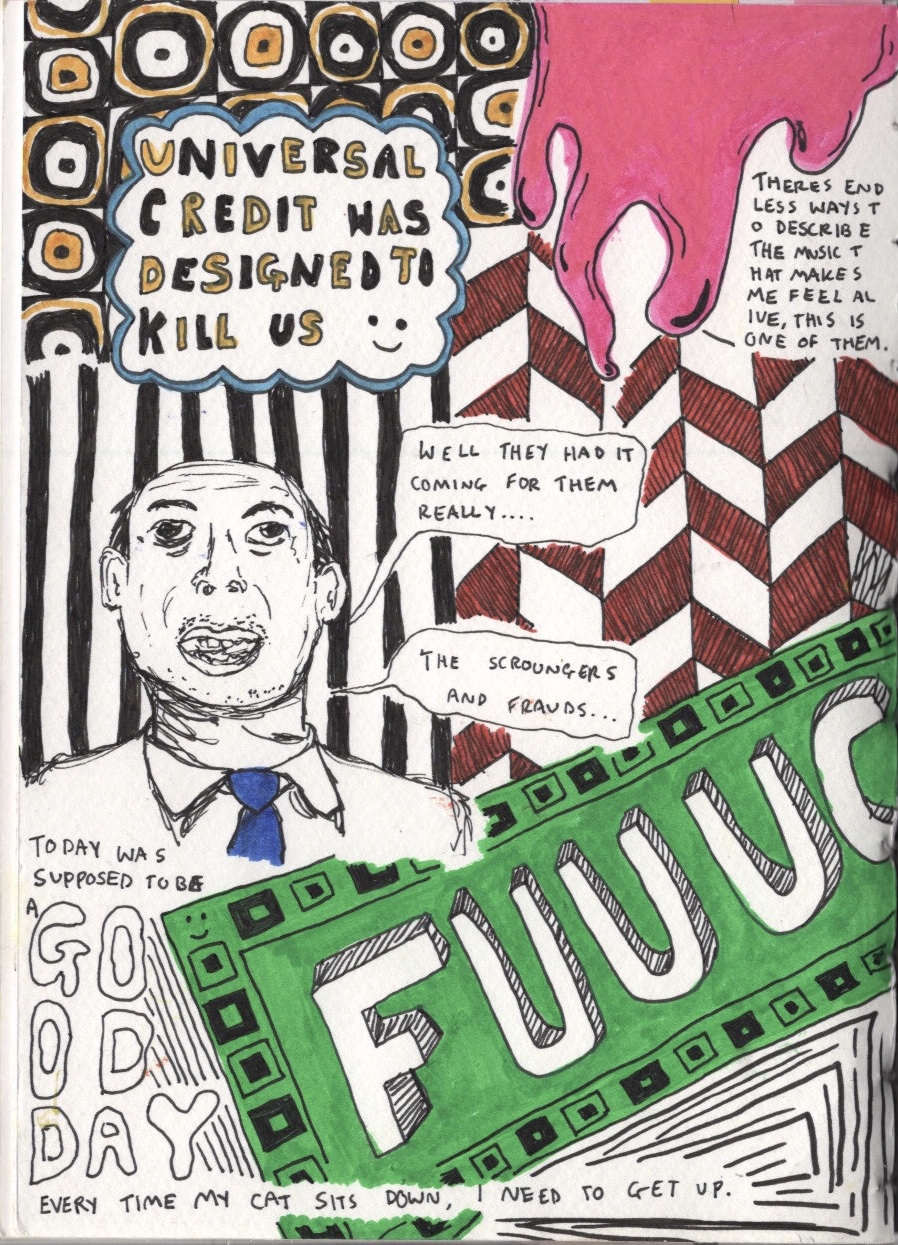 UNIVERSAL
CREDIT WAS
DESIGNED TO
KILL US
THERES END
LESS WAYS T
O DESCRIB E
THE MUSIC T
HAT MAKES
ME FEEL AL
IVE, THIS IS
ONE OF THEM.
WELL THEY HAD IT
COMING FOR THEM
REALLY....
THE SCROUNGERS
AND FRAUDS...
TODAY WAS
SUPPOSED TO BE
A
GO
OD
DAY
FUUUC
EVERY TIME MY CAT SITS DOWN, I NEED TO GET UP.